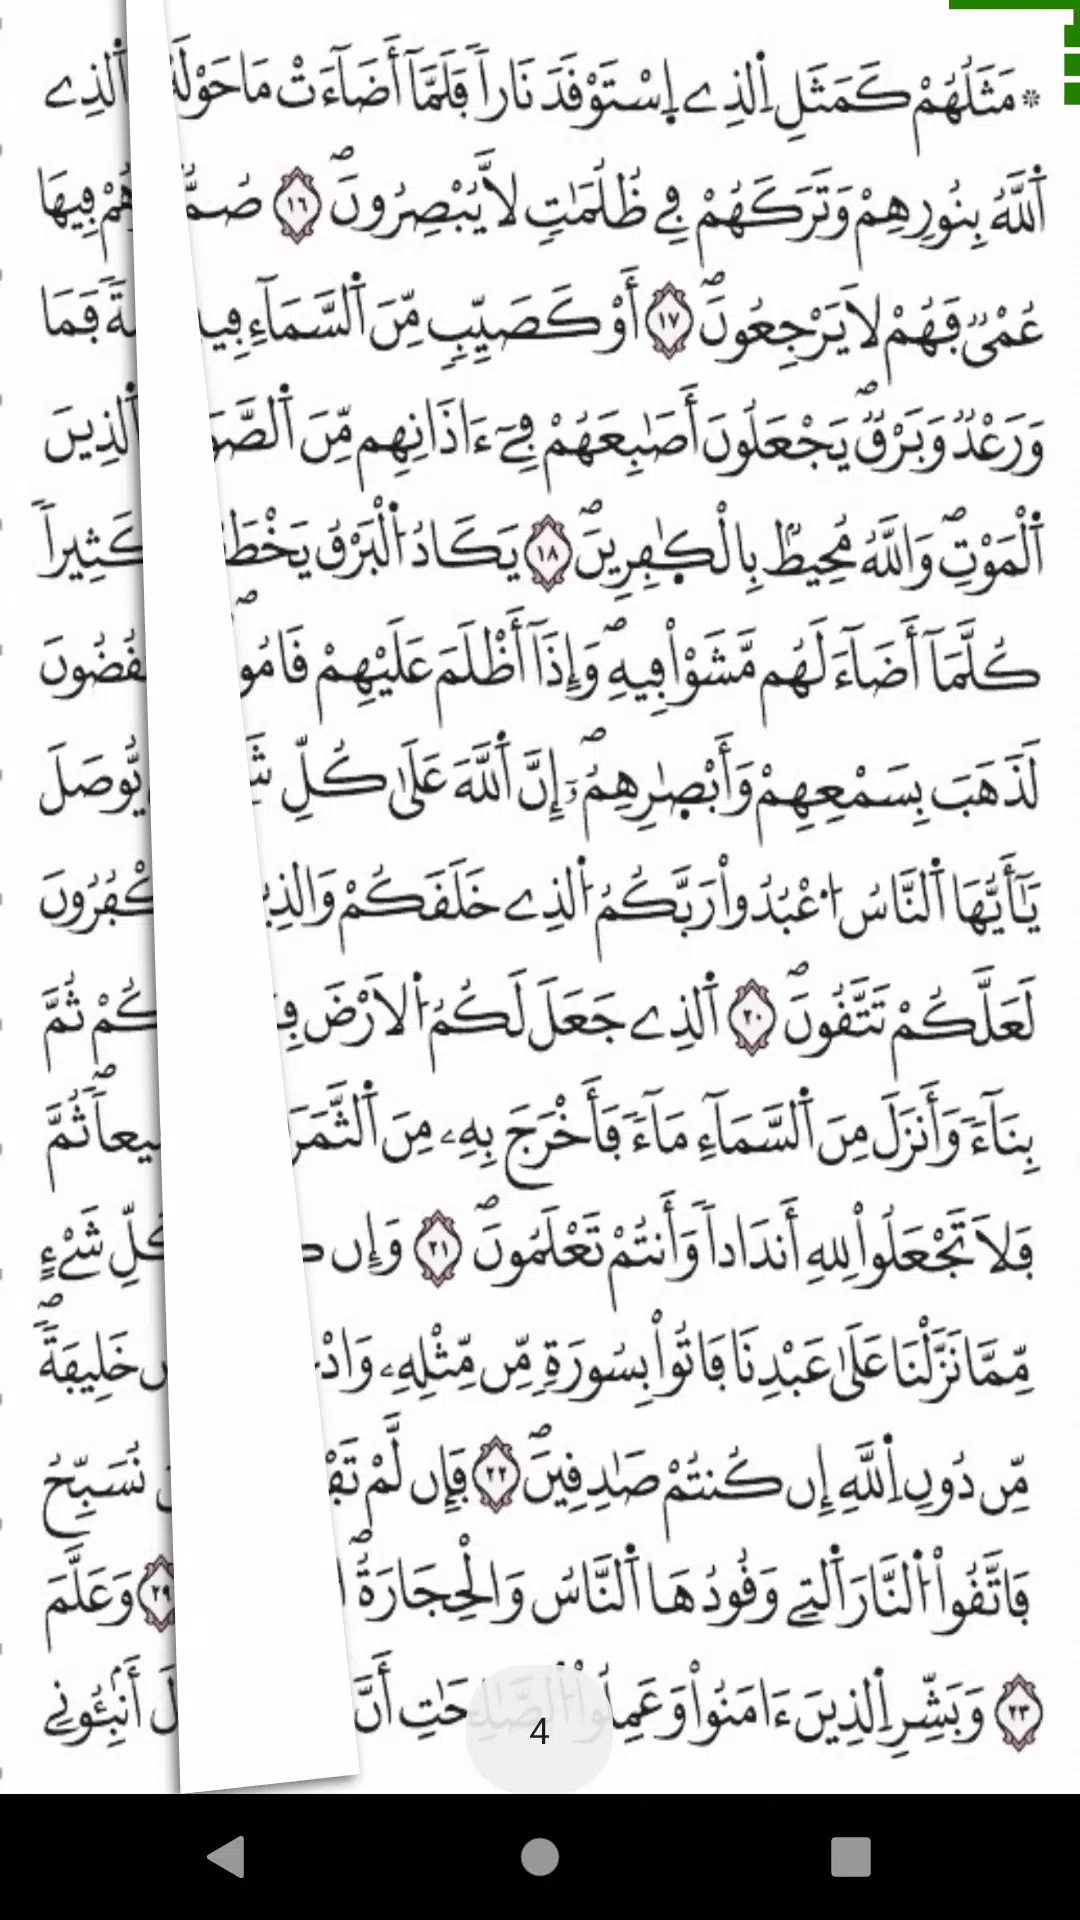 ۞ مَثَلُهُمْ كَمَثَلِ اِ۬لذِے اِ۪سْتَوْقَدَ نَاراٗ فَلَمَّآ أَضَآءَتْ مَا حَوْلَهُۥ
اَ۬للَّهُ بِنُورِهِمْ وَتَرَكَهُمْ فِے ظُلُمَٰتٖ لَّا يُبْصِرُونَۖ ١٦ صُمُّۢ
عُمْيٞ فَهُمْ لَا يَرْجِعُونَۖ ١٧ أَوْ كَصَيِّبٖ مِّنَ اَ۬لسَّمَآءِ فِيهِ
وَرَعْدٞ وَبَرْقٞۖ يَجْعَلُونَ أَصَٰبِعَهُمْ فِےٓ ءَاذَانِهِم مِّنَ
اَ۬لْمَوْتِۖ وَاللَّهُ مُحِيطُۢ بِالْكٰ۪فِرِينَۖ ١٨ يَكَادُ اُ۬لْبَرْقُ
كُلَّمَآ أَضَآءَ لَهُم مَّشَوْاْ فِيهِۖ وَإِذَآ أَظْلَمَ عَلَيْهِمْ
لَذَهَبَ بِسَمْعِهِمْ وَأَبْصٰ۪رِهِمُۥٓۖ إِنَّ اَ۬للَّهَ عَلَىٰ كُلِّ
يَٰٓأَيُّهَا اَ۬لنَّاسُ اُ۟عْبُدُواْ رَبَّكُمُ اُ۬لذِے خَلَقَكُمْ
لَعَلَّكُمْ تَتَّقُونَۖ ٢٠ اَ۬لذِے جَعَلَ لَكُمُ اُ۬لَارْضَ
بِنَآءٗ وَأَنزَلَ مِنَ اَ۬لسَّمَآءِ مَآءٗ فَأَخْرَجَ بِهِۦ مِنَ
فَلَا تَجْعَلُواْ لِلهِ أَندَاداٗ وَأَنتُمْ تَعْلَمُونَۖ ٢١ وَإِن
مِّمَّا نَزَّلْنَا عَلَىٰ عَبْدِنَا فَاتُواْ بِسُورَةٖ مِّن مِّثْلِهِۦ
مِّن دُونِ اِ۬للَّهِ إِن كُنتُمْ صَٰدِقِينَۖ ٢٢ فَإِن لَّمْ
فَاتَّقُواْ اُ۬لنَّارَ اَ۬لتِے وَقُودُهَا اَ۬لنَّاسُ وَالْحِجَارَةُۖ
٢٣ وَبَشِّرِ اِ۬لذِينَ ءَامَنُواْ وَعَمِلُواْ اُ۬لصَّٰلِحَٰتِ أَنَّ
4
اَ۬لذِے
فِيهَا
فَمَا
اَ۬لذِينَ
كَثِيراٗ
يُّوصَلَ
ثُمَّ
ثُمَّ
شَےْءٍ
خَلِيفَةٗۖ
نُسَبِّحُ
٢٩ وَعَلَّمَ
أَنۢبِـُٔونِے